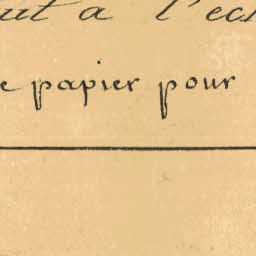 ut à l'ech
e papier pour